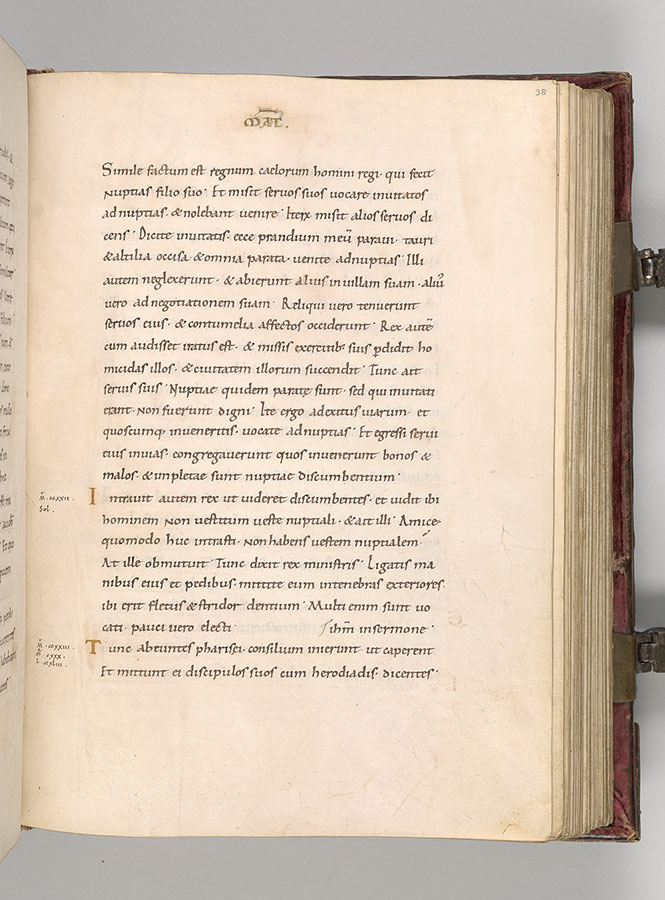 38
MAT.
Simile factum est regnum caelorum homini regi· qui fecit
nuptias filio suo· Et misit servos suos vocare invitatos
ad nuptias· & nolebant venire· Iterū misit alios servos di
cens· Dicite invitatis· ecce prandium meū paravi· tauri
& altilia occisa· & omnia parata· venite ad nuptias· Illi
autem neglexerunt· & abierunt alius in villam suam· aliū
vero ad negotiationem suam· Reliqui vero tenuerunt
servos eius· & contumelia affectos occiderunt· Rex autē
cum audisset iratus est· & missis exercitib; suis pdidit ho
micidas illos· & civitatem illorum succendit· Tunc ait
servis suis· Nuptiae quidem parate sunt· sed qui invitati
erant· non fuerunt digni· Ite ergo ad exitus viarum· et
quoscumq; inveneritis· vocate ad nuptias· Et egressi servi
eius in vias· congregaverunt quos invenerunt bonos &
malos· & impletae sunt nuptiae discumbentium·
Intravit autem rex ut videret discumbentes· et vidit ibi
hominem non vestitum veste nuptiali· & ait illi· Amice·
quomodo huc intrasti· non habens vestem nuptialem·
At ille obmutuit· Tunc dixit rex ministris· Ligatis ma
nibus eius et pedibus· mittite eum in tenebras exteriores·
ibi erit fletus & stridor dentium· Multi enim sunt vo
cati· pauci vero electi· ihm in sermone·
Tunc abeuntes pharisei· consilium inierunt ut caperent
Et mittunt ei discipulos suos cum herodiadis· dicentes·